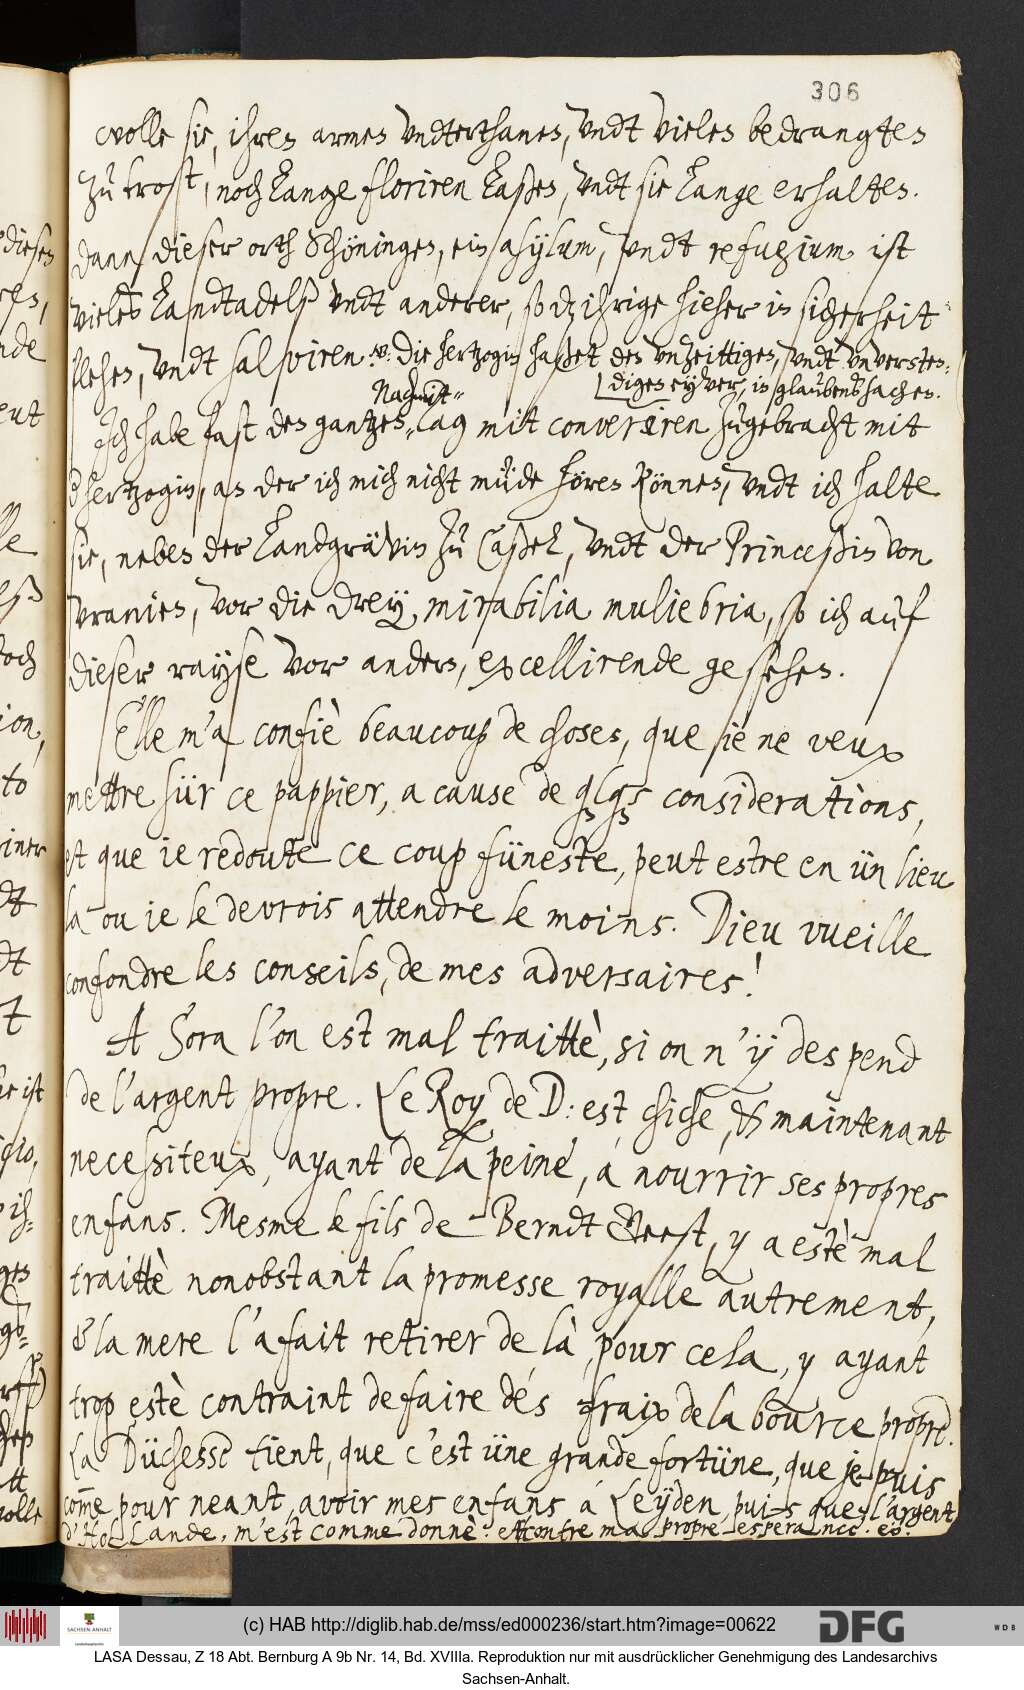 306
wolle sie, ihren armen vndterthanen, vndt vielen bedrangten
zu trost, noch lange floriren laßen, vndt sie lange erhalten.
dann dieser orth Schöningen, ein asylum, vndt refugium ist
vieles Landtadelß vndt anderer, so dz ihrige hieher in sicherheit
flehen, vndt salviren. Die Hertzogin haßet den vnzeittigen, vndt vnversten-
digen eyver, in glaubenßsachen.
Nachmit-
Ich habe fast den gantzen tag mit converiren zugebracht mit
d hertzogin, an der ich mich nicht müde hören können, vndt ich halte
sie, neben der Landgrävin zu Caßel, vndt der Princeßin von
Vranien, vor die drey mirabilia muliebria, so ich auf
dieser rayse vor andern, excellirende gesehen.
Elle m'a confiè beaucoup de choses, que ie ne veux
mettre sür ce pappier, a cause de qlqs considerations,
et que ie redoute ce coup füneste, peut estre en ün lieu
là ou ie le devrois attendre le moins. Dieu vueille
confondre les conseils, de mes adversaires!
A Sora l'on est mal traittè, si on n'ÿ despend
de l'argent propre. Le Roy de D: est chiche, & maintenant
necessiteux, ayant de la peine, a nourrir ses propres
enfans. Mesme le fils de Berndt Geest, y a estè mal
traittè nonobstant la promesse royalle autrement,
& la mere l'a fait retirer de là, pour cela, y ayant
trop estè contraint de faire dés fraix de la bource propre.
La Düchesse tient, que c'est üne grande fortüne, que je puis
com̄e pour neant, avoir mes enfans á Leÿden, puis que l'argent
d'Hollande, m'est comme donnè: et contre ma propre esperance. eö.
(c) HAB http://diglib.hab.de/mss/ed000236/start.htm?image=00622
DFG
WDB
SACHSEN-ANHALT
LASA Dessau, Z 18 Abt. Bernburg A 9b Nr. 14, Bd. XVIIIa. Reproduktion nur mit ausdrücklicher Genehmigung des Landesarchivs
Sachsen-Anhalt.